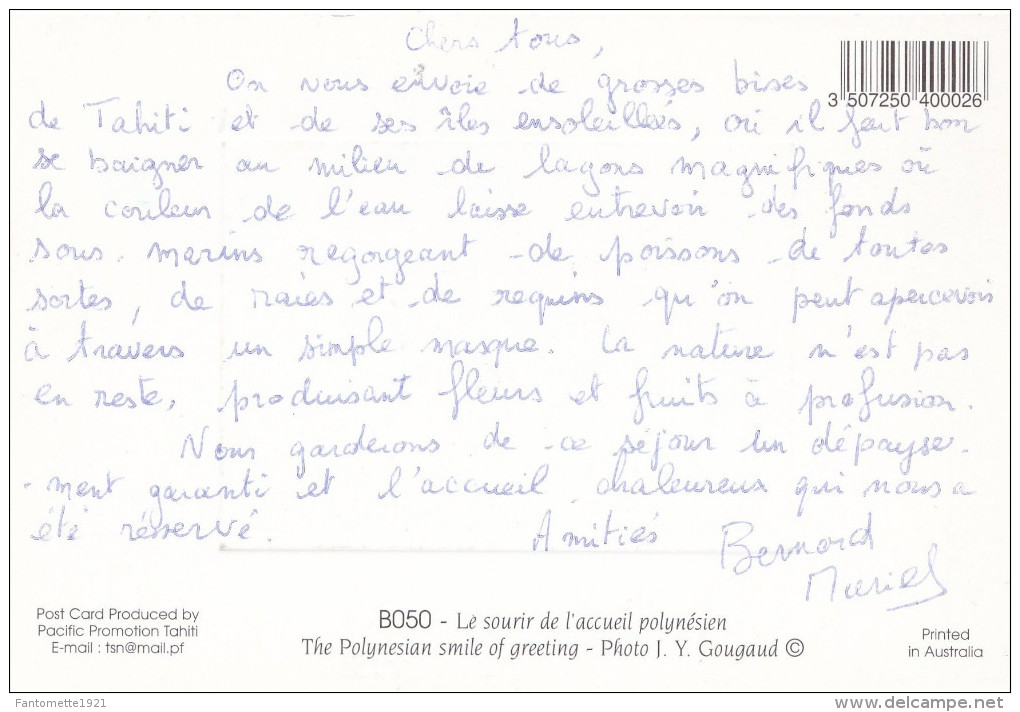 Chers tous,
On vous envoie de grosses bises
3 507250 400026
de Tahiti et de ses îles ensoleillées, où il fait bon
se baigner au milieu de lagons magnifiques où
la couleur de l'eau laisse entrevoir des fonds
sous-marins regorgeant de poissons de toutes
sortes, de raies et de requins qu'on peut apercevoir
à travers un simple masque. La nature n'est pas
en reste, produisant fleurs et fruits à profusion.
Nous garderons de ce séjour un dépayse-
-ment garanti et l'accueil chaleureux qui nous a
été réservé.
Amitiés Bernard
Muriel
Post Card Produced by
Pacific Promotion Tahiti
E-mail : tsn@mail.pf
B050 - Le sourir de l'accueil polynésien
The Polynesian smile of greeting - Photo J. Y. Gougaud ©
Printed
in Australia
Fantomette1921
www.delcampe.net